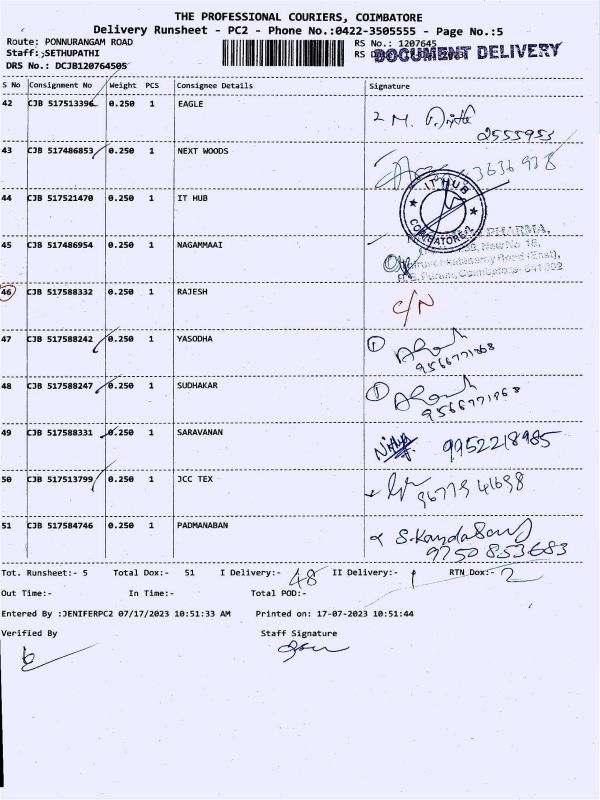 THE PROFESSIONAL COURIERS, COIMBATORE
Delivery Runsheet - PC2 - Phone No.:0422-3505555 - Page No.:5
Route: PONNURANGAM ROAD
RS No.: 1207645
Staff: SETHUPATHI
DOCUMENT DELIVERY
DRS No.: DCJB120764505
S No Consignment No Weight PCS Consignee Details Signature
42 CJB 517513396 0.250 1 EAGLE
2555953
43 CJB 517486853 0.250 1 NEXT WOODS
3636938
44 CJB 517521470 0.250 1 IT HUB
IT HUB
COIMBATORE-2
45 CJB 517486954 0.250 1 NAGAMMAAI
PHARMA,
New No 18,
(East),
Coimbatore- 641 002
46 CJB 517588332 0.250 1 RAJESH C/N
47 CJB 517588242 0.250 1 YASODHA
9566771268
48 CJB 517588247 0.250 1 SUDHAKAR
9566771268
49 CJB 517588331 0.250 1 SARAVANAN 9952218985
50 CJB 517513799 0.250 1 JCC TEX 96779 41698
51 CJB 517584746 0.250 1 PADMANABAN
9750853683
Tot. Runsheet:- 5 Total Dox:- 51 I Delivery:- 48 II Delivery:- 1 RTN Dox:- 2
Out Time:- In Time:- Total POD:-
Entered By :JENIFERPC2 07/17/2023 10:51:33 AM Printed on: 17-07-2023 10:51:44
Verified By Staff Signature